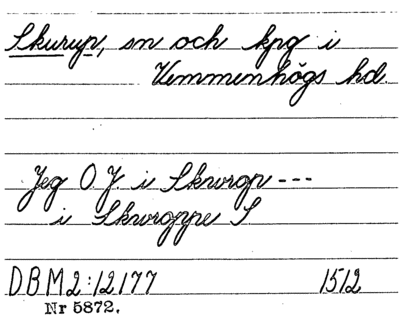 Skurup, sn och kpg i
Vemmenhögs hd.
Jeg O.J. i Skurgp ---
i Skworgppe S
DBM2:12177 1512
Nr 5872.